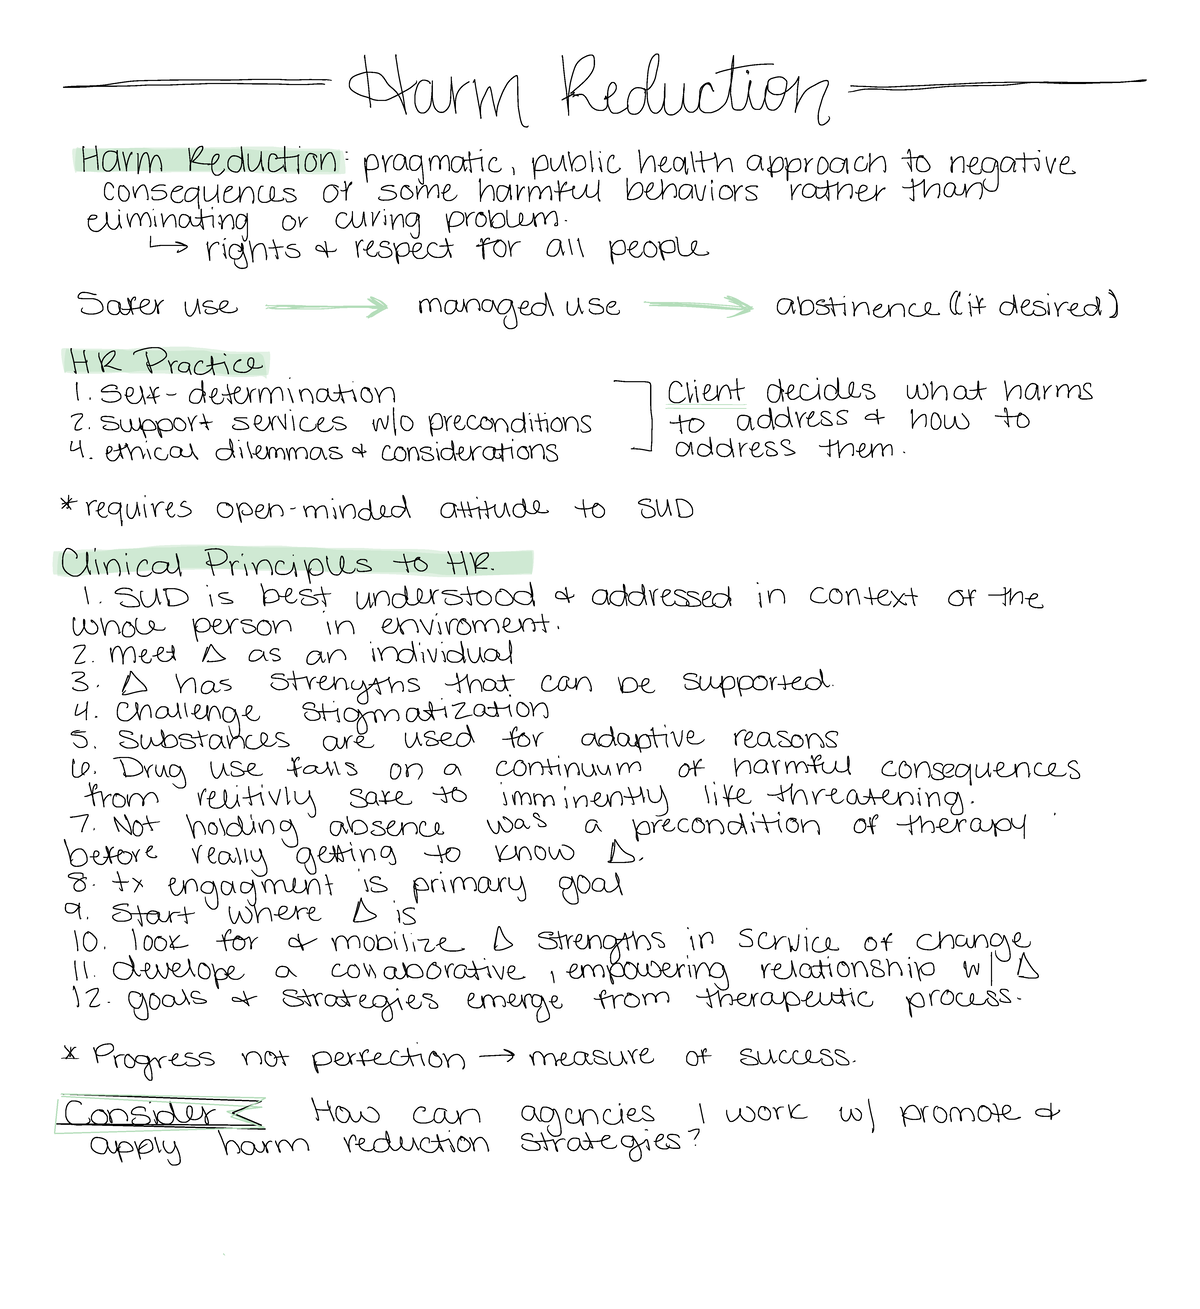 Harm Reduction
Harm Reduction: pragmatic, public health approach to negative
consequences of some harmful behaviors rather than
eliminating or curing problem.
↳ rights & respect for all people
Safer use → managed use → abstinence (if desired)
HR Practice
1. Self-determination
2. support services w/o preconditions
4. ethical dilemmas & considerations
Client decides what harms
to address & how to
address them.
* requires open-minded attitude to SUD
Clinical Principles to HR.
1. SUD is best understood & addressed in context of the
whole person in enviroment.
2. meet Δ as an individual
3. Δ has strengths that can be supported.
4. Challenge stigmatization
5. Substances are used for adaptive reasons
6. Drug use falls on a continuum of harmful consequences
from relitivly safe to imminently life threatening.
7. Not holding absence was a precondition of therapy
before really getting to know Δ.
8. tx engagment is primary goal
9. Start where Δ is
10. look for & mobilize Δ strengths in service of change
11. develope a collaborative, empowering relationship w/ Δ
12. goals & strategies emerge from therapeutic process.
* Progress not perfection → measure of success.
Consider < How can agencies I work w/ promote &
apply harm reduction strategies?